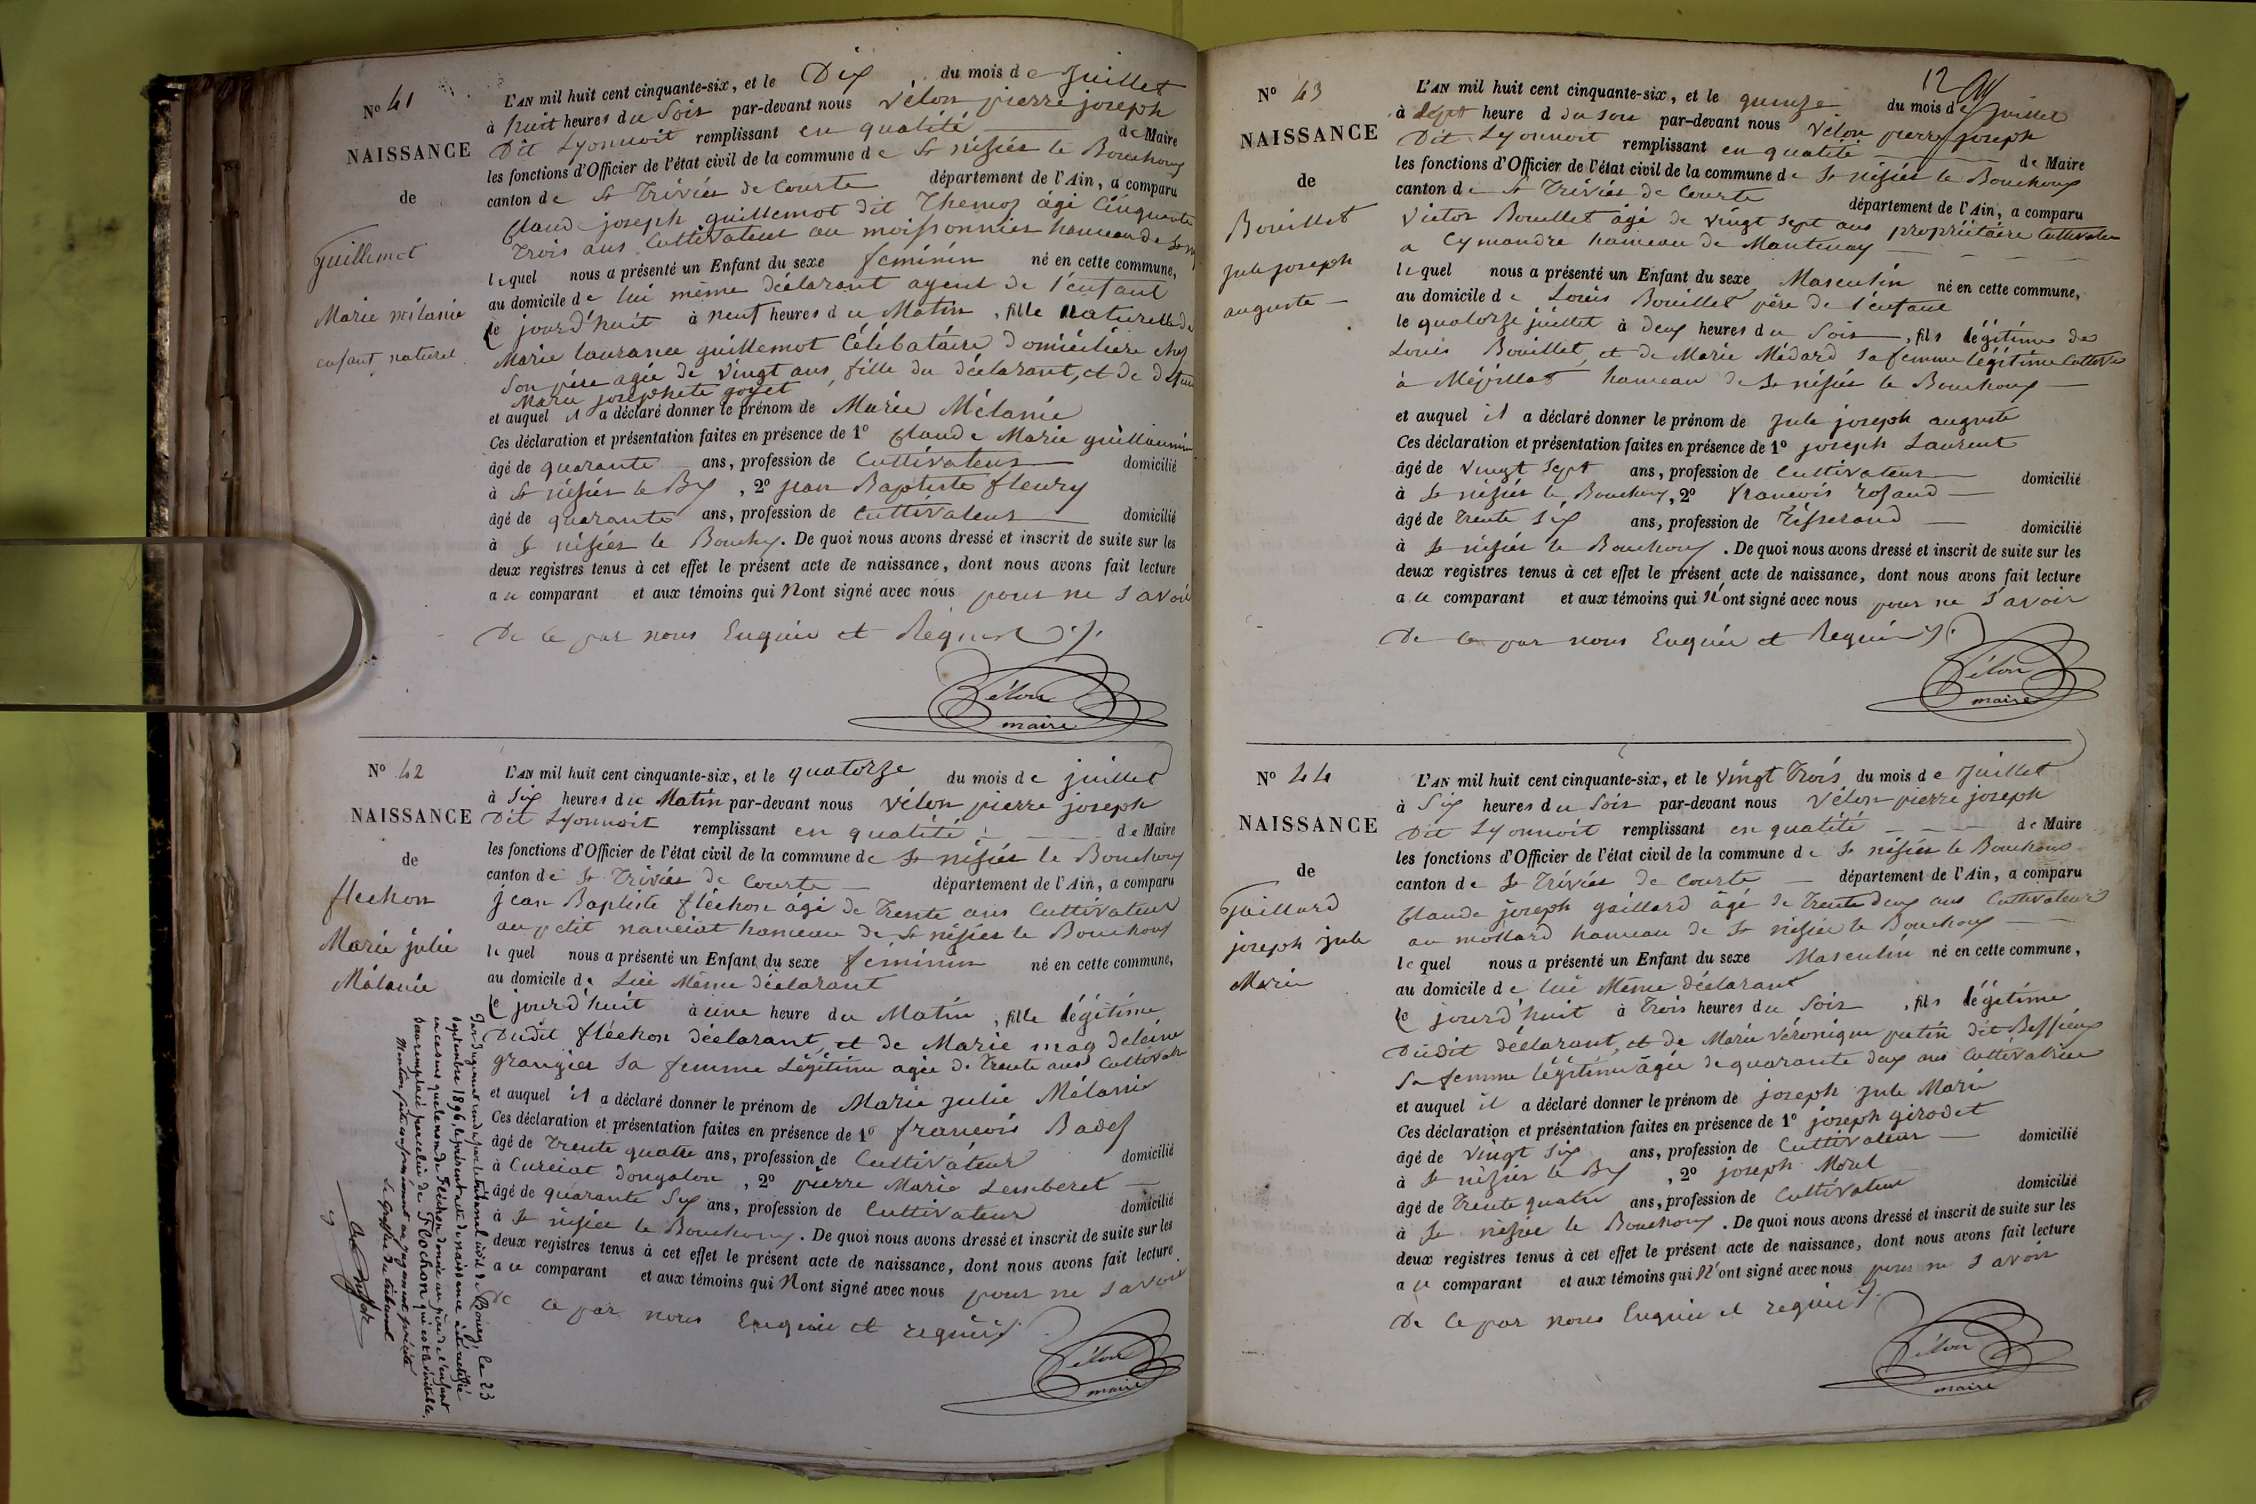 N° 41
NAISSANCE
de
Guillemot
Marie mélanie
enfant naturel
L'AN mil huit cent cinquante-six, et le Dix du mois de Juillet
à huit heures du Soir par-devant nous Vélon pierre joseph
Dit Lyonnoit remplissant en qualité de Maire
les fonctions d'Officier de l'état civil de la commune de St nisier le Bouchoux
canton de St Trivier de Courte département de l'Ain, a comparu
Claude joseph guillemot dit Thenoz âgé Cinquante
Trois ans Cultivateur au moissonnier hameau de St
lequel nous a présenté un Enfant du sexe feminin né en cette commune,
au domicile de lui même déclarant ayeul de l'enfant
le jourd'huit à neuf heures du Matin, fille naturelle de
Marie laurance guillemot Célébatáire domicilière chez
son père agée de vingt ans, fille du déclarant, et de
Marie josephete goyet
et auquel il a déclaré donner le prénom de Marie Mélanie
Ces déclaration et présentation faites en présence de 1° Claude Marie guillaumin
âgé de quarante ans, profession de Cultivateur domicilié
à St nisier le Bx, 2° jean Baptiste fleury
âgé de quarante ans, profession de Cultivateur domicilié
à St nisier le Bouchx. De quoi nous avons dressé et inscrit de suite sur les
deux registres tenus à cet effet le présent acte de naissance, dont nous avons fait lecture
au comparant et aux témoins qui Nont signé avec nous pour ne savoir
De ce par nous Enquis et Requis
Vélon
maire
N° 42
NAISSANCE
de
flechon
Marie julie
Mélanie
L'AN mil huit cent cinquante-six, et le quatorze du mois de juillet
à Six heures du Matin par-devant nous Vélon pierre joseph
Dit Lyonnoit remplissant en qualité de Maire
les fonctions d'Officier de l'état civil de la commune de St nisier le Bouchoux
canton de St Trivier de Courte département de l'Ain, a comparu
jean Baptiste fléchon âgé de Trente ans Cultivateur
au petit nanciat hameau de St nisier le Bouchoux
lequel nous a présenté un Enfant du sexe feminin né en cette commune,
au domicile de Lui Même déclarant
le jourd'huit à une heure du Matin, fille légitime
Dudit fléchon déclarant, et de Marie magdeleine
grangier Sa femme Légitime agée de Trente ans
et auquel il a déclaré donner le prénom de Marie Julie Mélanie
Ces déclaration et présentation faites en présence de 1° francois Badez
âgé de Trente quatre ans, profession de Cultivateur domicilié
à Curciat dongalon, 2° pierre Marie Lemberet
âgé de quarante Six ans, profession de Cultivateur domicilié
à St nisier le Bouchoux. De quoi nous avons dressé et inscrit de suite sur les
deux registres tenus à cet effet le présent acte de naissance, dont nous avons fait lecture
au comparant et aux témoins qui Nont signé avec nous pour ne savoir
de ce par nous Enquis et requis
Vélon
maire
Par Jugement rendu par le tribunal civil de Bourg, le 23
septembre 1896, le présent acte de naissance a été rectifié
en ce sens que le nom de Fléchon donné au père de l'enfant
sera remplacé par celui de Flochon qui est le véritable.
Mention faite conformément au jugement précité
Le Greffier du tribunal
N° 43
NAISSANCE
de
Bouillet
Jule joseph
auguste
12
L'AN mil huit cent cinquante-six, et le quinze du mois de Juillet
à Sept heure d du soir par-devant nous Vélon pierre joseph
Dit Lyonnoit remplissant en qualité de Maire
les fonctions d'Officier de l'état civil de la commune de St nisier le Bouchoux
canton de St Trivier de Courte département de l'Ain, a comparu
Victor Bouillet âgé de vingt Sept ans propriétaire Cultivateur
a Cymandre hameau de Mantenay
lequel nous a présenté un Enfant du sexe Masculin né en cette commune,
au domicile de Louis Bouillet père de l'enfant
le quatorze juillet à deux heures du Soir, fils légitime de
Louis Bouillet, et de Marie Médard sa femme légitime
à Mépillat hameau de St nisier le Bouchoux
et auquel il a déclaré donner le prénom de Jule joseph auguste
Ces déclaration et présentation faites en présence de 1° joseph Laurent
âgé de vingt Sept ans, profession de Cultivateur domicilié
à St nisier le Bouchoux, 2° francois rozand
âgé de Trente Six ans, profession de Tisserand domicilié
à St nisier le Bouchoux. De quoi nous avons dressé et inscrit de suite sur les
deux registres tenus à cet effet le présent acte de naissance, dont nous avons fait lecture
au comparant et aux témoins qui N'ont signé avec nous pour ne savoir
De ce par nous Enquis et Requis
Vélon
maire
N° 44
NAISSANCE
de
Gaillard
joseph jule
Marie
L'AN mil huit cent cinquante-six, et le vingt Trois du mois de Juillet
à Six heures du Soir par-devant nous Vélon pierre joseph
Dit Lyonnoit remplissant en qualité de Maire
les fonctions d'Officier de l'état civil de la commune de St nisier le Bouchoux
canton de St Trivier de Courte département de l'Ain, a comparu
Claude joseph gaillard âgé de Trente deux ans Cultivateur
au mollard hameau de St nisier le Bouchoux
lequel nous a présenté un Enfant du sexe Masculin né en cette commune,
au domicile de lui Même déclarant
le jourd'huit à Trois heures du Soir, fils légitime
Dudit déclarant, et de Marie Véronique putin dit Beffieux
Sa femme légitime âgée de quarante deux ans Cultivatrice
et auquel il a déclaré donner le prénom de joseph Jule Marie
Ces déclaration et présentation faites en présence de 1° joseph girodet
âgé de vingt Six ans, profession de Cultivateur domicilié
à St nisier le Bx, 2° joseph Morel
âgé de Trente quatre ans, profession de Cultivateur domicilié
à St nisier le Bouchoux. De quoi nous avons dressé et inscrit de suite sur les
deux registres tenus à cet effet le présent acte de naissance, dont nous avons fait lecture
au comparant et aux témoins qui N'ont signé avec nous pour ne savoir
De ce par nous Enquis et requis
Vélon
maire